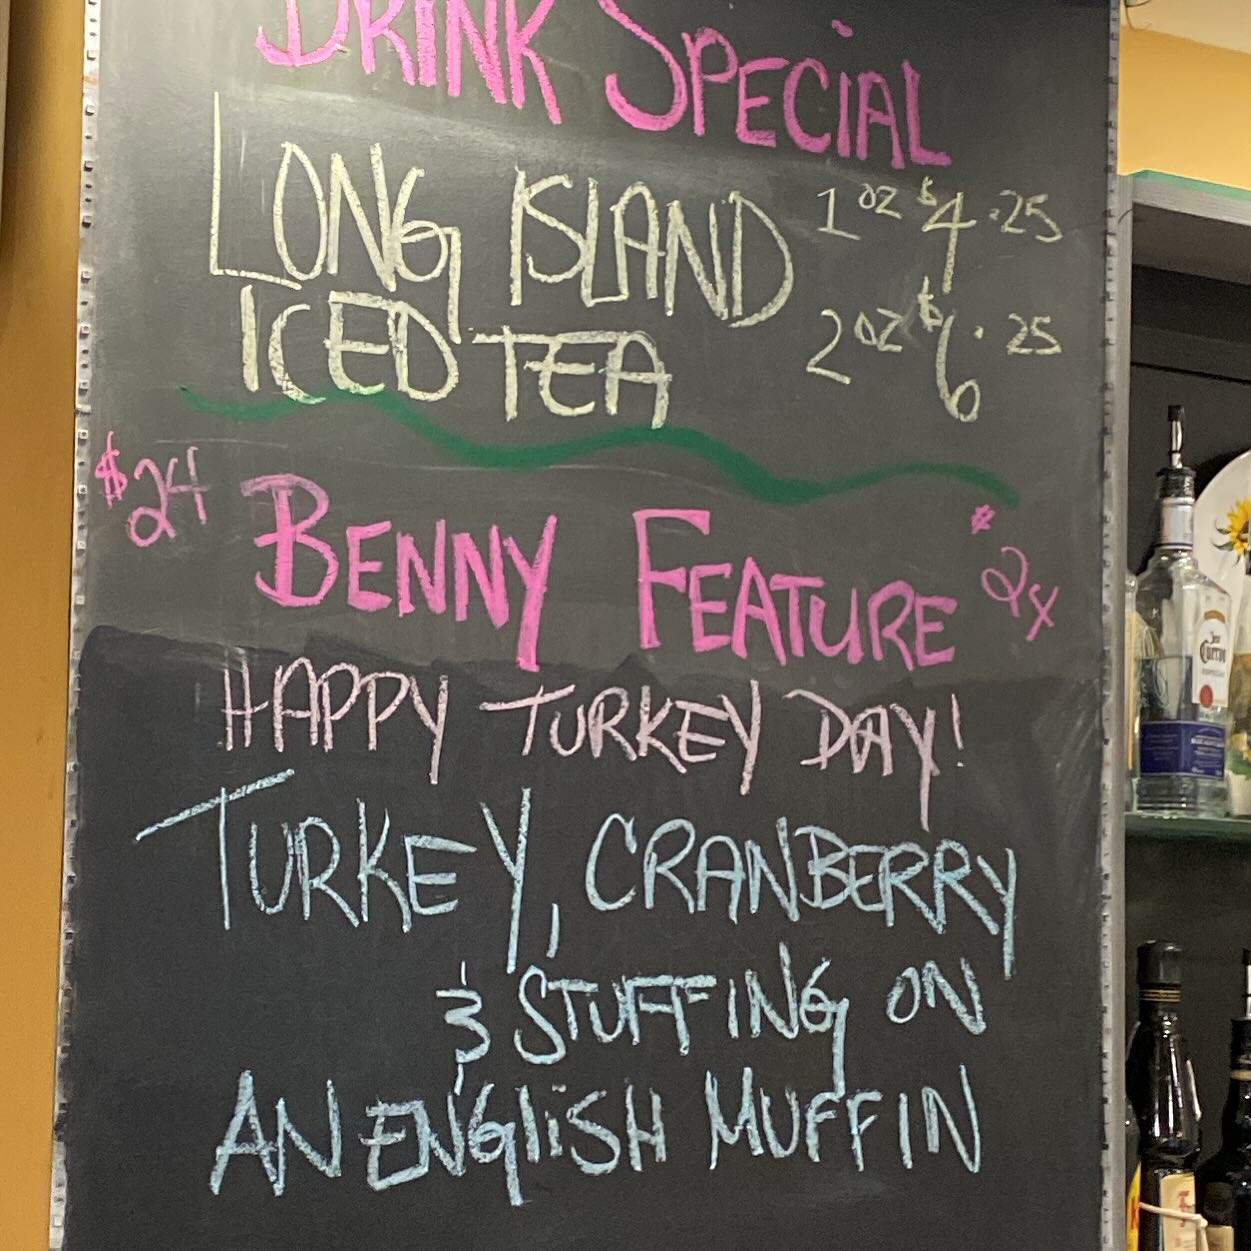 DRINK SPECIAL
LONG ISLAND 1oz $4.25
ICED TEA 2oz $6.25
$24 BENNY FEATURE $24
HAPPY TURKEY DAY!
TURKEY, CRANBERRY
& STUFFING ON
AN ENGLISH MUFFIN
Jose
Cuervo
ESPECIAL